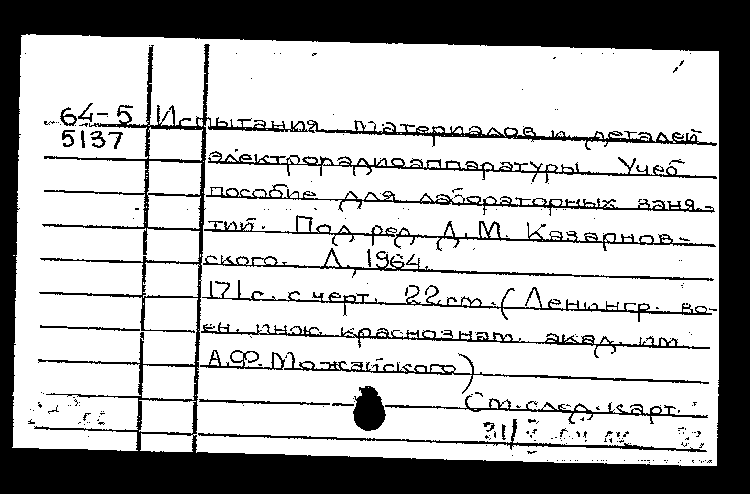 64-5 Испытания материалов и деталей
5137
электрорадиоаппаратуры. Учеб
пособие для лабораторных заня-
тий. Под ред. Д.М. Казарнов-
ского. Л., 1964.
171 с. с черт. 22 см. (Ленингр. во-
ен. инж. краснознам. акад. им
А.Ф. Можайского).
См. след. карт.